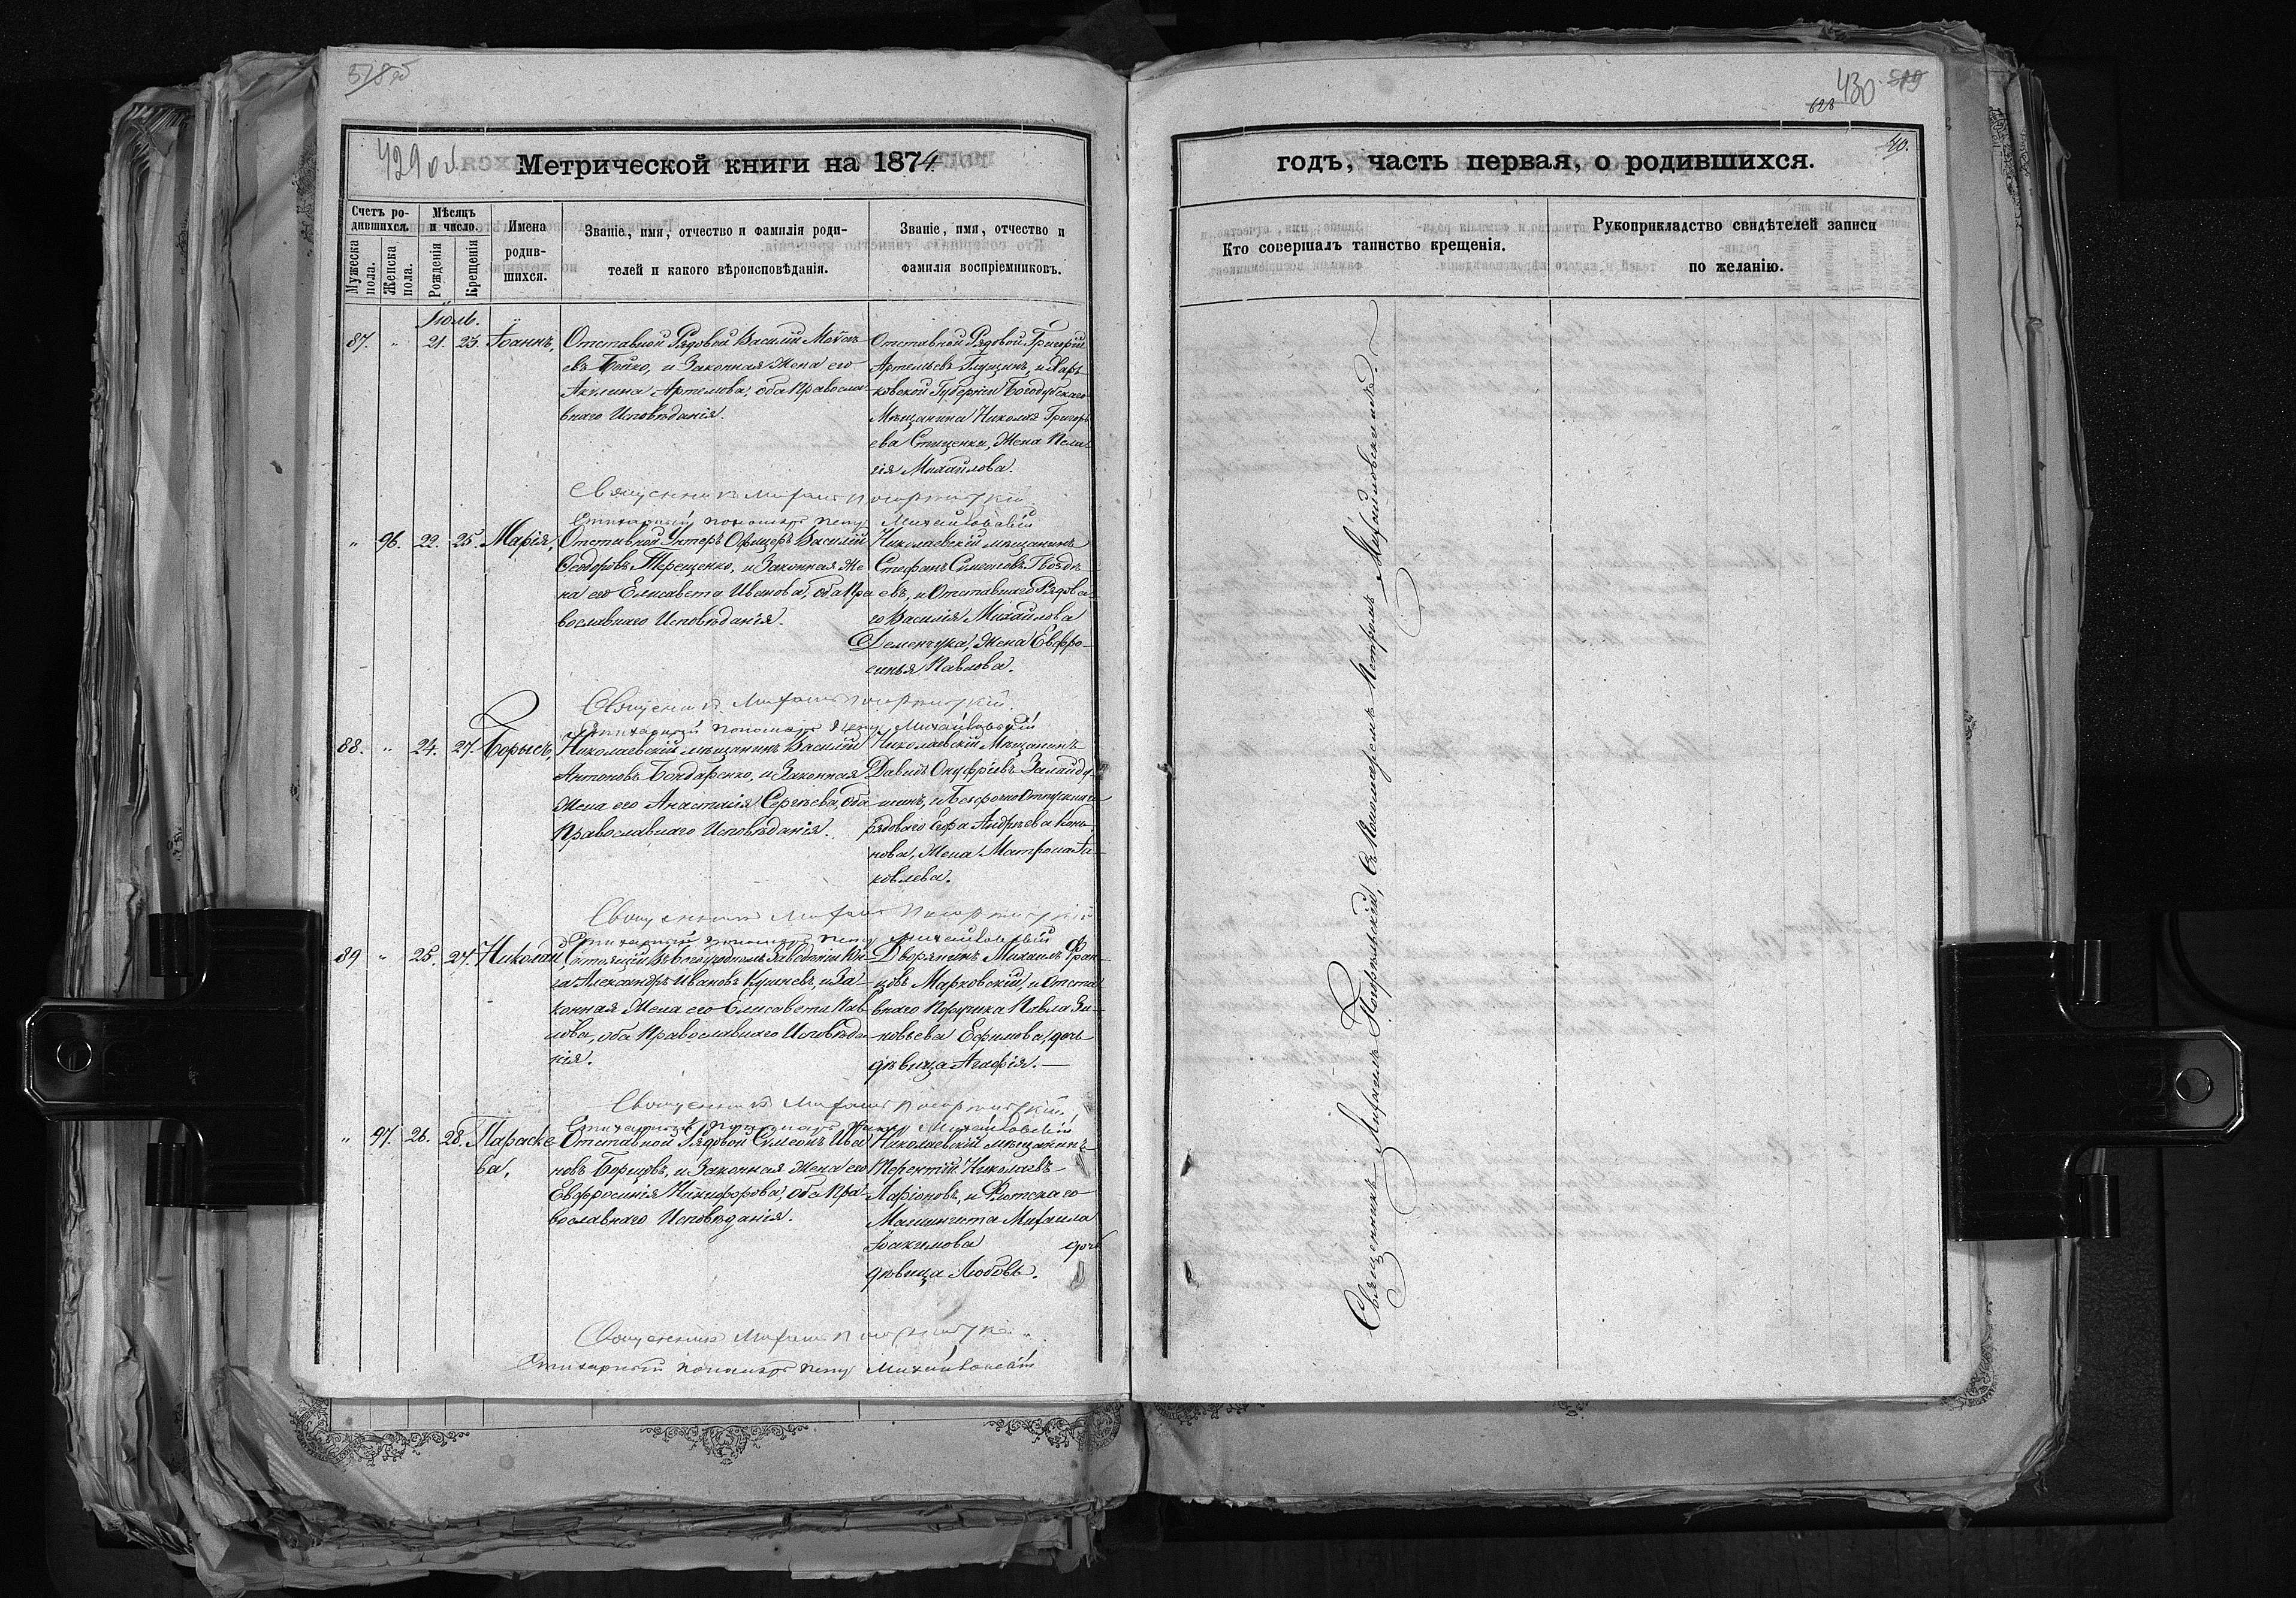 429 об.
Метрической книги на 1874
Счетъ ро-
дившихся.
Мужеска пола.
Женска пола.
Мѣсяцъ
и число.
Рожденія
Крещенія
Имена
родив-
шихся.
Званіе, имя, отчество и фамилія роди-
телей и какого вѣроисповѣданія.
Званіе, имя, отчество и
фамилія воспріемниковъ.
Іюль.
87. " 21. 23. Іоаннъ,
Отставной Рядовой Василій Моѵсе-
евъ Бойко, и Законная Жена его
Акилина Артемова, оба Правосла-
внаго Исповѣданія.
Отставной Рядовой Григорій
Артемьевъ Глущинъ, и Харь-
ковской Губерніи Богодухскаго
Мѣщанина Николая Григорь-
ева Стыценки, Жена Пела-
гія Михайлова.
Священникъ Михаилъ
Стихарный пономарь Петръ Михайловскій
" 96. 22. 25. Марія,
Отставной Унтеръ Офицеръ Василій
Ѳеодоровъ Терещенко, и Законная Же-
на его Елисавета Иванова, оба Пра-
вославнаго Исповѣданія.
Николаевскій мѣщанинъ
Стефанъ Симеоновъ Гвозде-
евъ, и Отставнаго Рядова-
го Василія Михайлова
Деменчука, Жена Евфро-
синья Павлова.
Священникъ Михаилъ
Стихарный пономарь Петръ Михайловскій
88. " 24. 27. Борысъ,
Николаевскій мѣщанинъ Василій
Антоновъ Бондаренко, и Законная
Жена его Анастасія Сергѣева, оба
Православнаго Исповѣданія.
Николаевскій Мѣщанинъ
Давидъ Онуфріевъ
шинъ, и Безсрочно Отпускнаго
рядоваго Егора Андреева Коно-
нова, Жена Матрона Іа-
ковлева.
Священникъ Михаилъ
Стихарный пономарь Петръ Михайловскій
89 " 25. 27. Николай,
Состоящій въ
Александръ Ивановъ Кушневъ, и За-
конная Жена его Елисавета Пав-
лова, оба Православнаго Исповѣда-
нія.
Дворянинъ Михаилъ Фран-
цовъ Марковскій, и Отста-
внаго Поручика Павла Зи-
новьева Ефимова, дочь
дѣвица Агафія. —
Священникъ Михаилъ
Стихарный пономарь Петръ Михайловскій
" 97. 26. 28. Параске-
ва,
Отставной Рядовой Симеонъ Ива-
новъ Борцовъ, и Законная Жена его
Евфросинія Никифорова, оба Пра-
вославнаго Исповѣданія.
Николаевскій мѣщанинъ
Терентій Николаевъ
Ларіоновъ, и Флотскаго
Машиниста Михаила
Іоакимова дочь
дѣвица Любовь.
Священникъ Михаилъ
Стихарный пономарь Петръ Михайловскій
430 519
628
40.
годъ, часть первая, о родившихся.
Кто совершалъ таинство крещенія.
Рукоприкладство свидѣтелей записи
по желанію.
Священникъ Михаилъ Погорѣльскій, съ Пономаремъ Петромъ Михайловскимъ.